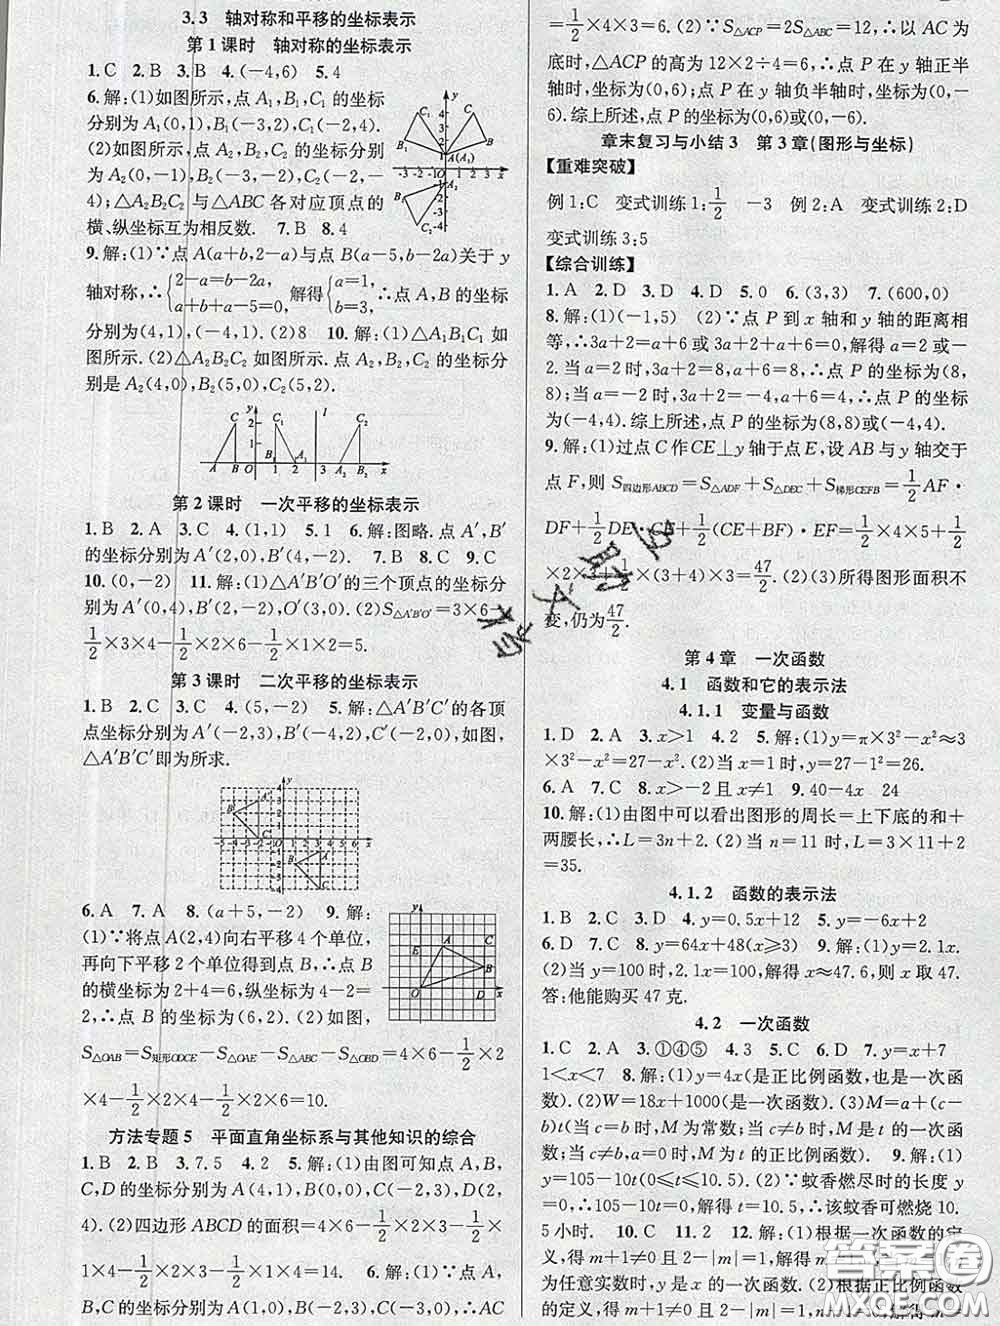 3.3 轴对称和平移的坐标表示
第1课时 轴对称的坐标表示
1.C 2.B 3.B 4.(-4,6) 5.4
6.解:(1)如图所示,点A₁,B₁,C₁的坐标
分别为A₁(0,1),B₁(-3,2),C₁(-2,4).
(2)如图所示,点A₂,B₂,C₂的坐标分别
为A₂(0,-1),B₂(-3,-2),C₂(-2,-
4);△A₂B₂C₂与△ABC各对应顶点的
横、纵坐标互为相反数. 7.B 8.4
9.解:(1)∵点A(a+b,2-a)与点B(a-5,b-2a)关于y
轴对称,∴{2-a=b-2a, a+b+a-5=0, 解得{a=1, b=3, ∴点A,B的坐标
分别为(4,1),(-4,1). (2)8 10.解:(1)△A₁B₁C₁如
图所示. (2)△A₂B₂C₂如图所示. 点A₂,B₂,C₂的坐标分
别是A₂(4,0),B₂(5,0),C₂(5,2).
第2课时 一次平移的坐标表示
1.B 2.A 3.C 4.(1,1) 5.1 6.解:图略. 点A′,B′
的坐标分别为A′(2,0),B′(4,-2). 7.B 8.C 9.C
10.(0,-2) 11.解:(1)△A′B′O′的三个顶点的坐标分
别为A′(4,-2),B′(2,-4),O′(3,0). (2)S△A′B′O′=3×6-
1/2×3×4-1/2×2×4-1/2×1×6=18-6-4-3=5.
第3课时 二次平移的坐标表示
1.B 2.C 3.C 4.(5,-2) 5.解:△A′B′C′的各顶
点坐标分别为A′(-2,3),B′(-4,2),C′(-2,0),如图,
△A′B′C′即为所求.
6.A 7.A 8.(a+5,-2) 9.解:
(1)∵将点A(2,4)向右平移4个单位,
再向下平移2个单位得到点B,∴点B
的横坐标为2+4=6,纵坐标为4-2=
2,∴点B的坐标为(6,2). (2)如图,
S△OAB=S矩形ODCE-S△OAE-S△ABC-S△OBD=4×6-1/2×2
×4-1/2×2×4-1/2×2×6=10.
方法专题5 平面直角坐标系与其他知识的综合
1.B 2.B 3.7.5 4.2 5.解:(1)由图可知点A,B,
C,D的坐标分别为A(4,1),B(0,0),C(-2,3),D(2,
4). (2)四边形ABCD的面积=4×6-1/2×2×3-1/2×
1×4-1/2×2×3-1/2×1×4=14. 6.解:(1)∵点A,
B,C的坐标分别为A(1,0),B(-2,0),C(-1,4),∴AC
=1/2×4×3=6. (2)∵S△ACP=2S△ABC=12,∴以AC为
底时,△ACP的高为12×2÷4=6,∴点P在y轴正半
轴时,坐标为(0,6);点P在y轴负半轴时,坐标为(0,-
6). 综上所述,点P的坐标为(0,6)或(0,-6).
章末复习与小结3 第3章(图形与坐标)
【重难突破】
例1:C 变式训练1:1/2 -3 例2:A 变式训练2:D
变式训练3:5
【综合训练】
1.A 2.D 3.D 4.D 5.0 6.(3,3) 7.(600,0)
8.解:(1)(-1,5) (2)∵点P到x轴和y轴的距离相
等,∴3a+2=a+6或3a+2+a+6=0,解得a=2或-
2. 当a=2时,3a+2=8,a+6=8,∴点P的坐标为(8,
8);当a=-2时,3a+2=-4,a+6=4,∴点P的坐标
为(-4,4). 综上所述,点P的坐标为(8,8)或(-4,4).
9.解:(1)过点C作CE⊥y轴于点E,设AB与y轴交于
点F,则S四边形ABCD=S△ADF+S△DEC+S梯形CEFB=1/2AF·
DF+1/2DE·CE+1/2(CE+BF)·EF=1/2×4×5+1/2
×2×3+1/2×(3+4)×3=47/2. (2)所得图形面积不
变,仍为47/2.
第4章 一次函数
4.1 函数和它的表示法
4.1.1 变量与函数
1.D 2.A 3.x>1 4.2 5.解:(1)y=π×3²-x²≈3
×3²-x²=27-x². (2)当x=1时,y=27-1²=26.
6.A 7.C 8.x>-2且x≠1 9.40-4x 24
10.解:(1)由图中可以看出图形的周长=上下底的和+
两腰长,∴L=3n+2. (2)当n=11时,L=3×11+2
=35.
4.1.2 函数的表示法
1.B 2.C 3.D 4.y=0.5x+12 5.y=-6x+2
6.D 7.C 8.y=64x+48(x≥3) 9.解:(1)y=2.1x.
(2)当y=100时,2.1x=100,解得x≈47.6,则x取47.
答:他能购买47克.
4.2 一次函数
1.C 2.A 3.①④⑤ 4.3 5.C 6.D 7.y=x+7
1<x<7 8.解:(1)y=4x(是正比例函数,也是一次函
数). (2)W=18x+1000(是一次函数). (3)M=a+(c-
b)t(当c=b时,M为常数;当c≠b时,M是t的一次函
数;当c≠b,a=0时,M为t的正比例函数). 9.解:(1)
y=105-10t(0≤t≤10.5). (2)∵蚊香燃尽时的长度
y=0,∴105-10t=0,解得t=10.5,∴该蚊香可燃烧10.
5小时. 10.C 11.2 12.解:(1)根据一次函数的定
义,得m+1≠0且2-|m|=1,解得m=1.
为任意实数时,y是x的一次函数. (2)根据正比例函数
的定义,得m+1≠0且2-|m|=1,
作业精灵
答案圈
MXQE.COM